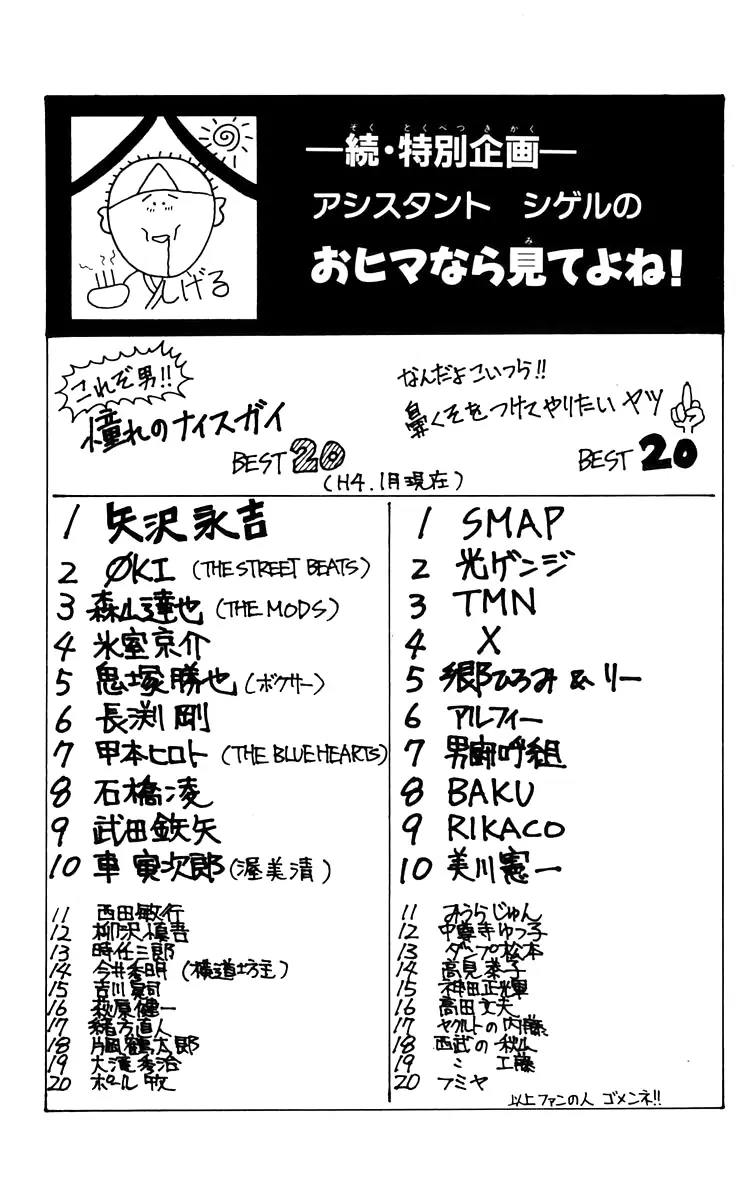 ―続・特別企画―
ぞく とくべつきかく
アシスタント シゲルの
おヒマなら見てよね!
み
しげる
これぞ男!!
憧れのナイスガイ
BEST 20
なんだよこいつら!!
鼻くそをつけてやりたい ヤツ
BEST 20
(H4.1月現在)
1 矢沢永吉
2 ØKI (THE STREET BEATS)
3 森山達也 (THE MODS)
4 氷室京介
5 鬼塚勝也 (ボクサー)
6 長渕剛
7 甲本ヒロト (THE BLUE HEARTS)
8 石橋凌
9 武田鉄矢
10 車寅次郎 (渥美清)
11 西田敏行
12 柳沢慎吾
13 時任三郎
14 今井秀明 (横道坊主)
15 吉川晃司
16 萩原健一
17 緒方直人
18 片岡鶴太郎
19 大滝秀治
20 ポール牧
1 SMAP
2 光ゲンジ
3 TMN
4 X
5 郷ひろみ & リー
6 アルフィー
7 男闘呼組
8 BAKU
9 RIKACO
10 美川憲一
11 みうらじゅん
12 中尊寺ゆつ子
13 ダンプ松本
14 高見恭子
15 神田正輝
16 高田文夫
17 ヤクルトの内藤
18 西武の秋山
19 〃 工藤
20 フミヤ
以上ファンの人 ゴメンネ!!